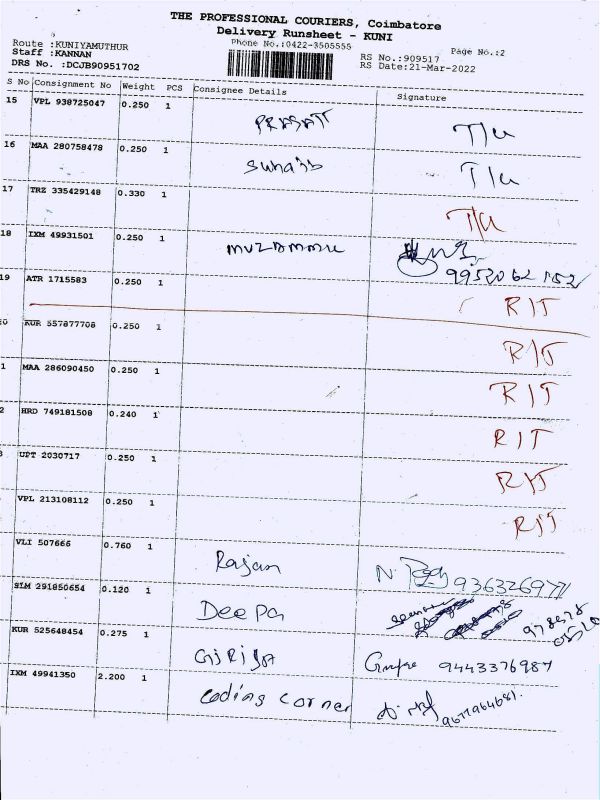 THE PROFESSIONAL COURIERS, Coimbatore
Delivery Runsheet - KUNI
Phone No.:0422-3505555
Page No.:2
Route :KUNIYAMUTHUR
Staff :KANNAN
DRS No. :DCJB90951702
RS No.:909517
RS Date:21-Mar-2022
S No Consignment No Weight PCS Consignee Details Signature
15 VPL 938725047 0.250 1 T/u
16 MAA 280758478 0.250 1 Suhaib T/u
17 TRZ 335429148 0.330 1 T/u
18 IXM 49931501 0.250 1
19 ATR 1715583 0.250 1 R/T
0 KUR 557877708 0.250 1 R/T
1 MAA 286090450 0.250 1 R/T
2 HRD 749181508 0.240 1 R/T
UPT 2030717 0.250 1 R/T
VPL 213108112 0.250 1 R/T
VLI 507666 0.760 1 Rajan
SLM 291850654 0.120 1 Deepa
KUR 525648454 0.275 1 9443376987
IXM 49941350 2.200 1 coding corner